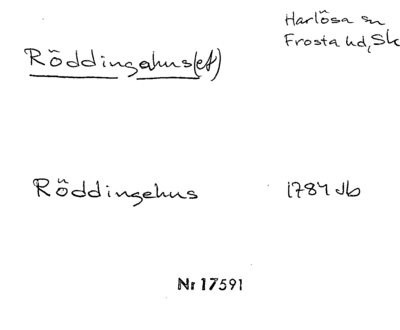 Harlösa sn
Frosta hd, Sk
Röddingahus(et)
Röddingehus 1784 Jb
Nr 17591